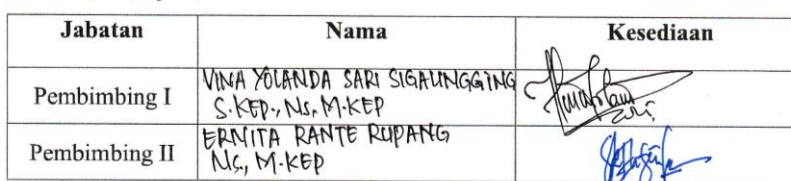 Jabatan Nama Kesediaan
Pembimbing I VINA YOLANDA SARI SIGALINGGING
S.KEP., Ns, M.KEP
Pembimbing II ERNITA RANTE RUPANG
Ns., M.KEP